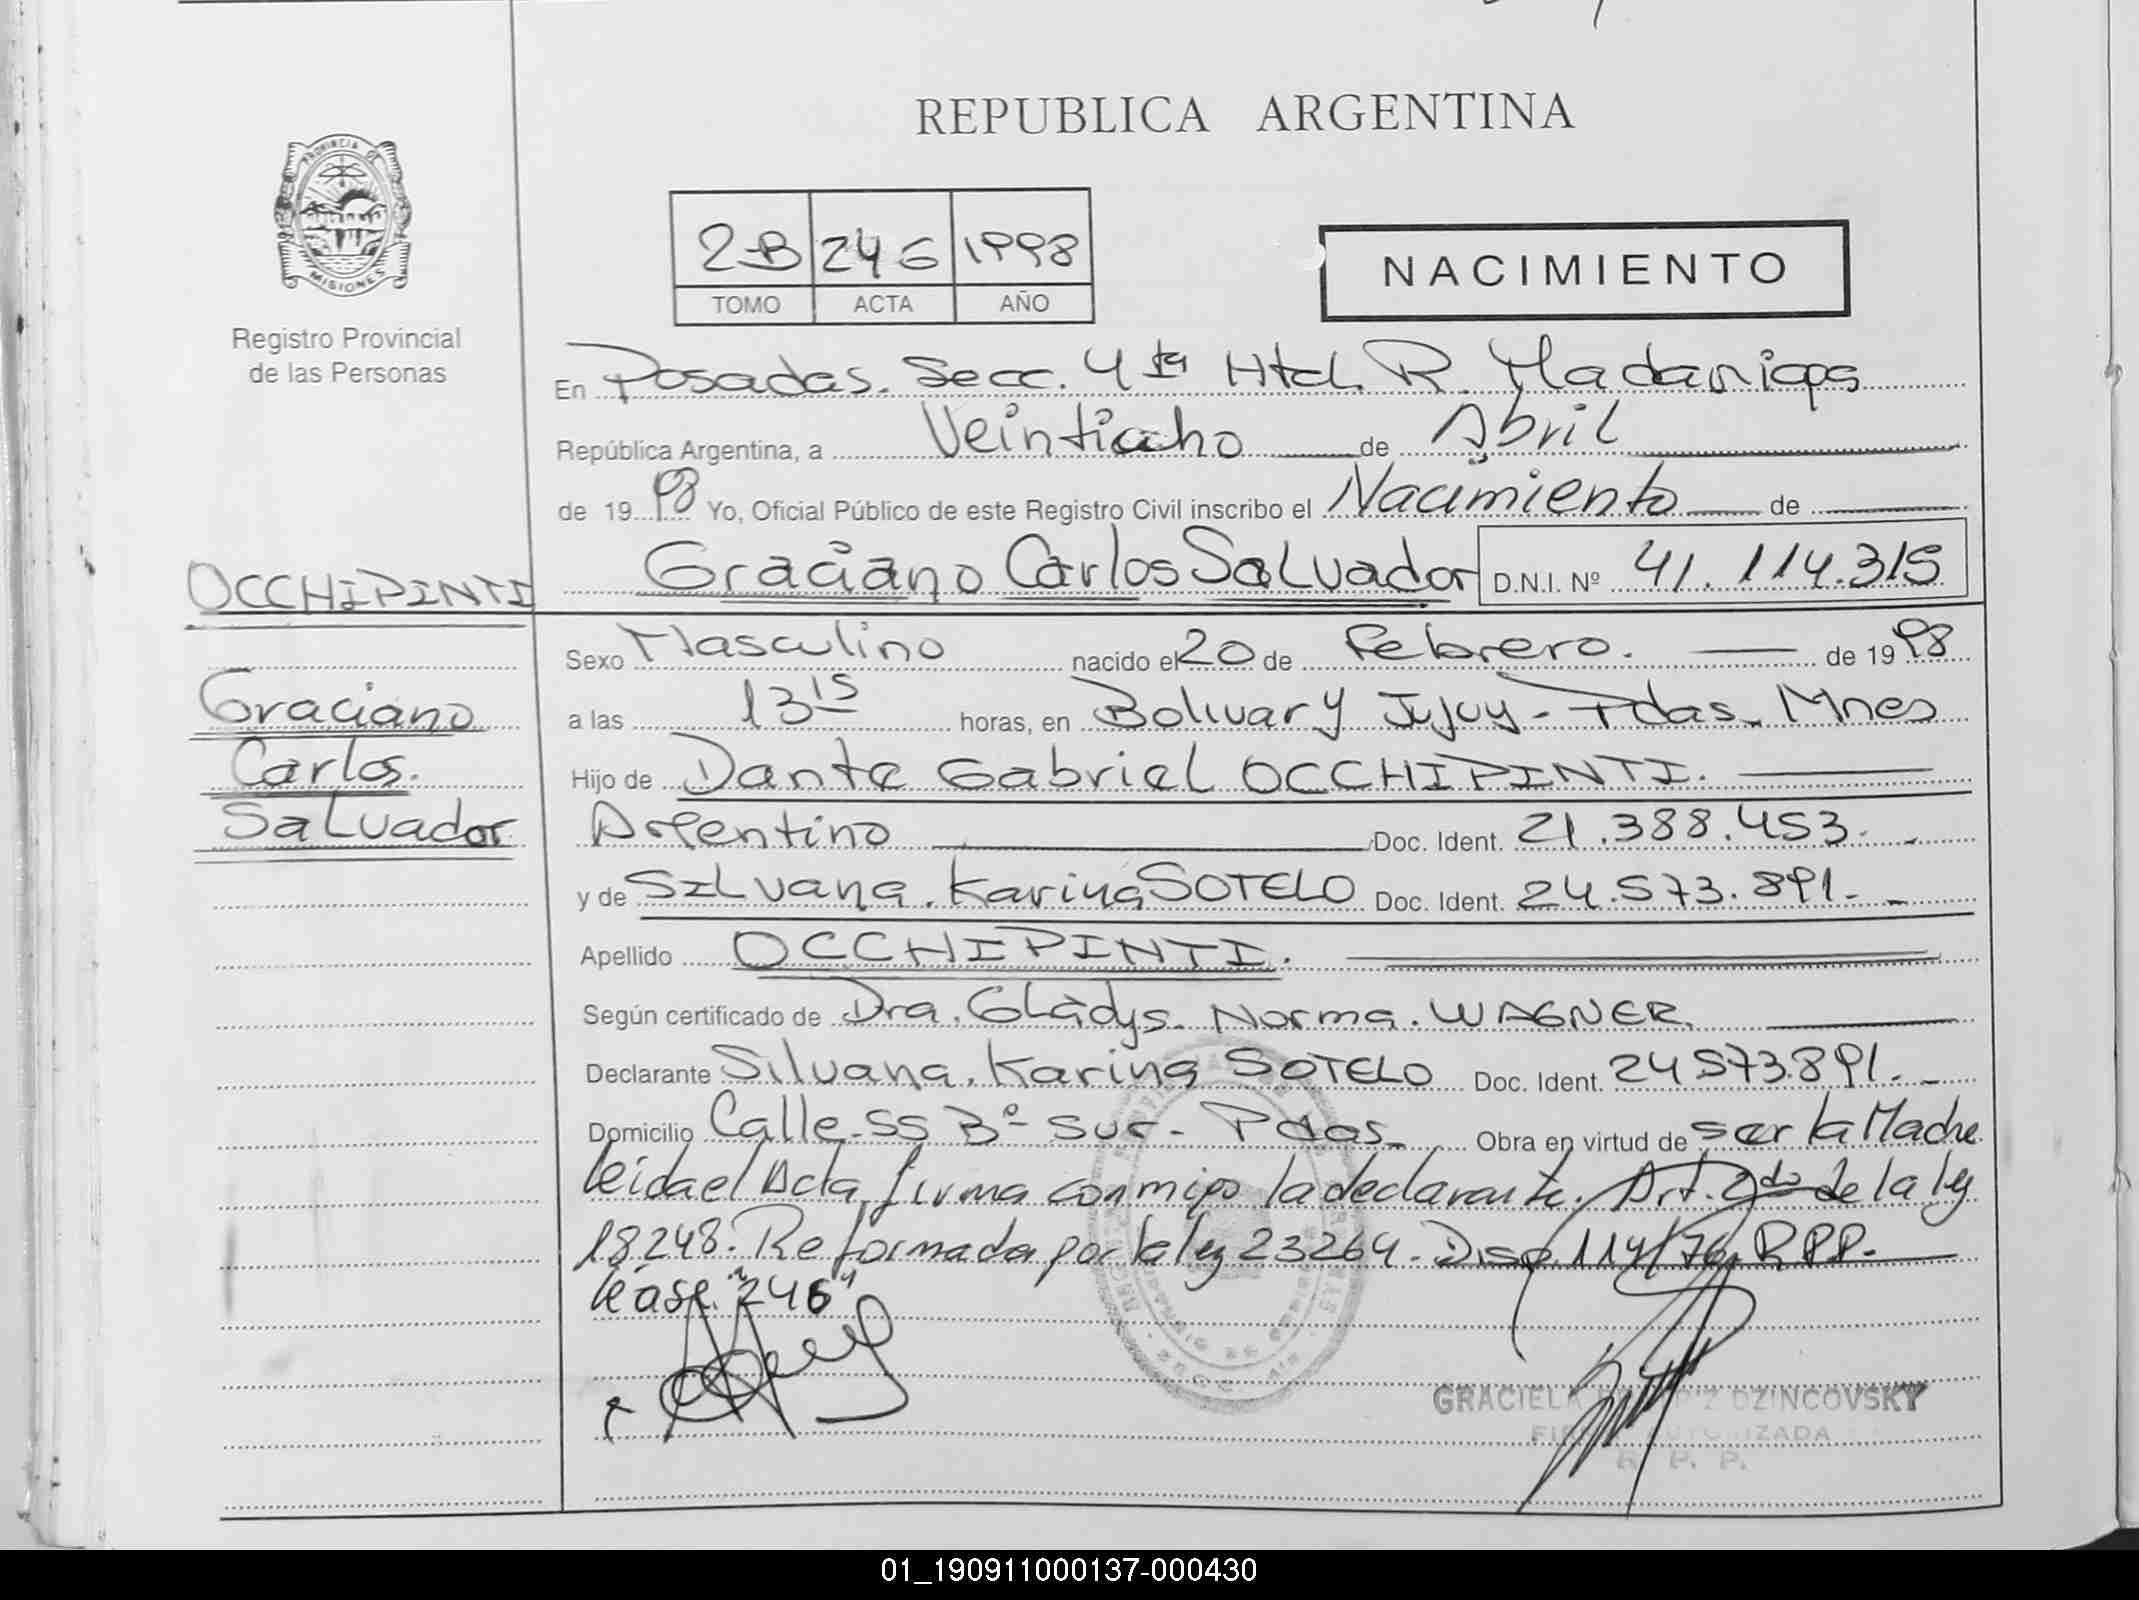 REPUBLICA ARGENTINA
PROVINCIA DE
MISIONES
Registro Provincial
de las Personas
2-B 246 1998
TOMO ACTA AÑO
NACIMIENTO
En Posadas. Secc. 4ta Htal. R. Madariaga
República Argentina, a Veintiocho de Abril
de 1998 Yo, Oficial Público de este Registro Civil inscribo el Nacimiento de
Graciano Carlos Salvador D.N.I. Nº 41.114.315
OCCHIPINTI
Graciano
Carlos.
Salvador
Sexo Masculino nacido el 20 de Febrero. de 1998
a las 13 15 horas, en Bolivar y Jujuy - Pdas. Mnes
Hijo de Dante Gabriel OCCHIPINTI.
Argentino Doc. Ident. 21.388.453.-
y de Silvana. Karina SOTELO Doc. Ident. 24.573.891.-
Apellido OCCHIPINTI.
Según certificado de Dra. Gladys. Norma. WAGNER.
Declarante Silvana. Karina SOTELO Doc. Ident. 24573.891.-
Domicilio Calle-55 Bº Sur - Pdas. Obra en virtud de ser la Madre
leida el Acta firma conmigo la declarante. Art. 2do de la ley
18248. Reformada por la ley 23264. Disp. 114/76 RPP.
lease "246"
GRACIELA DZINCOVSKY
FIRMA AUTORIZADA
R. P. P.
01_190911000137-000430